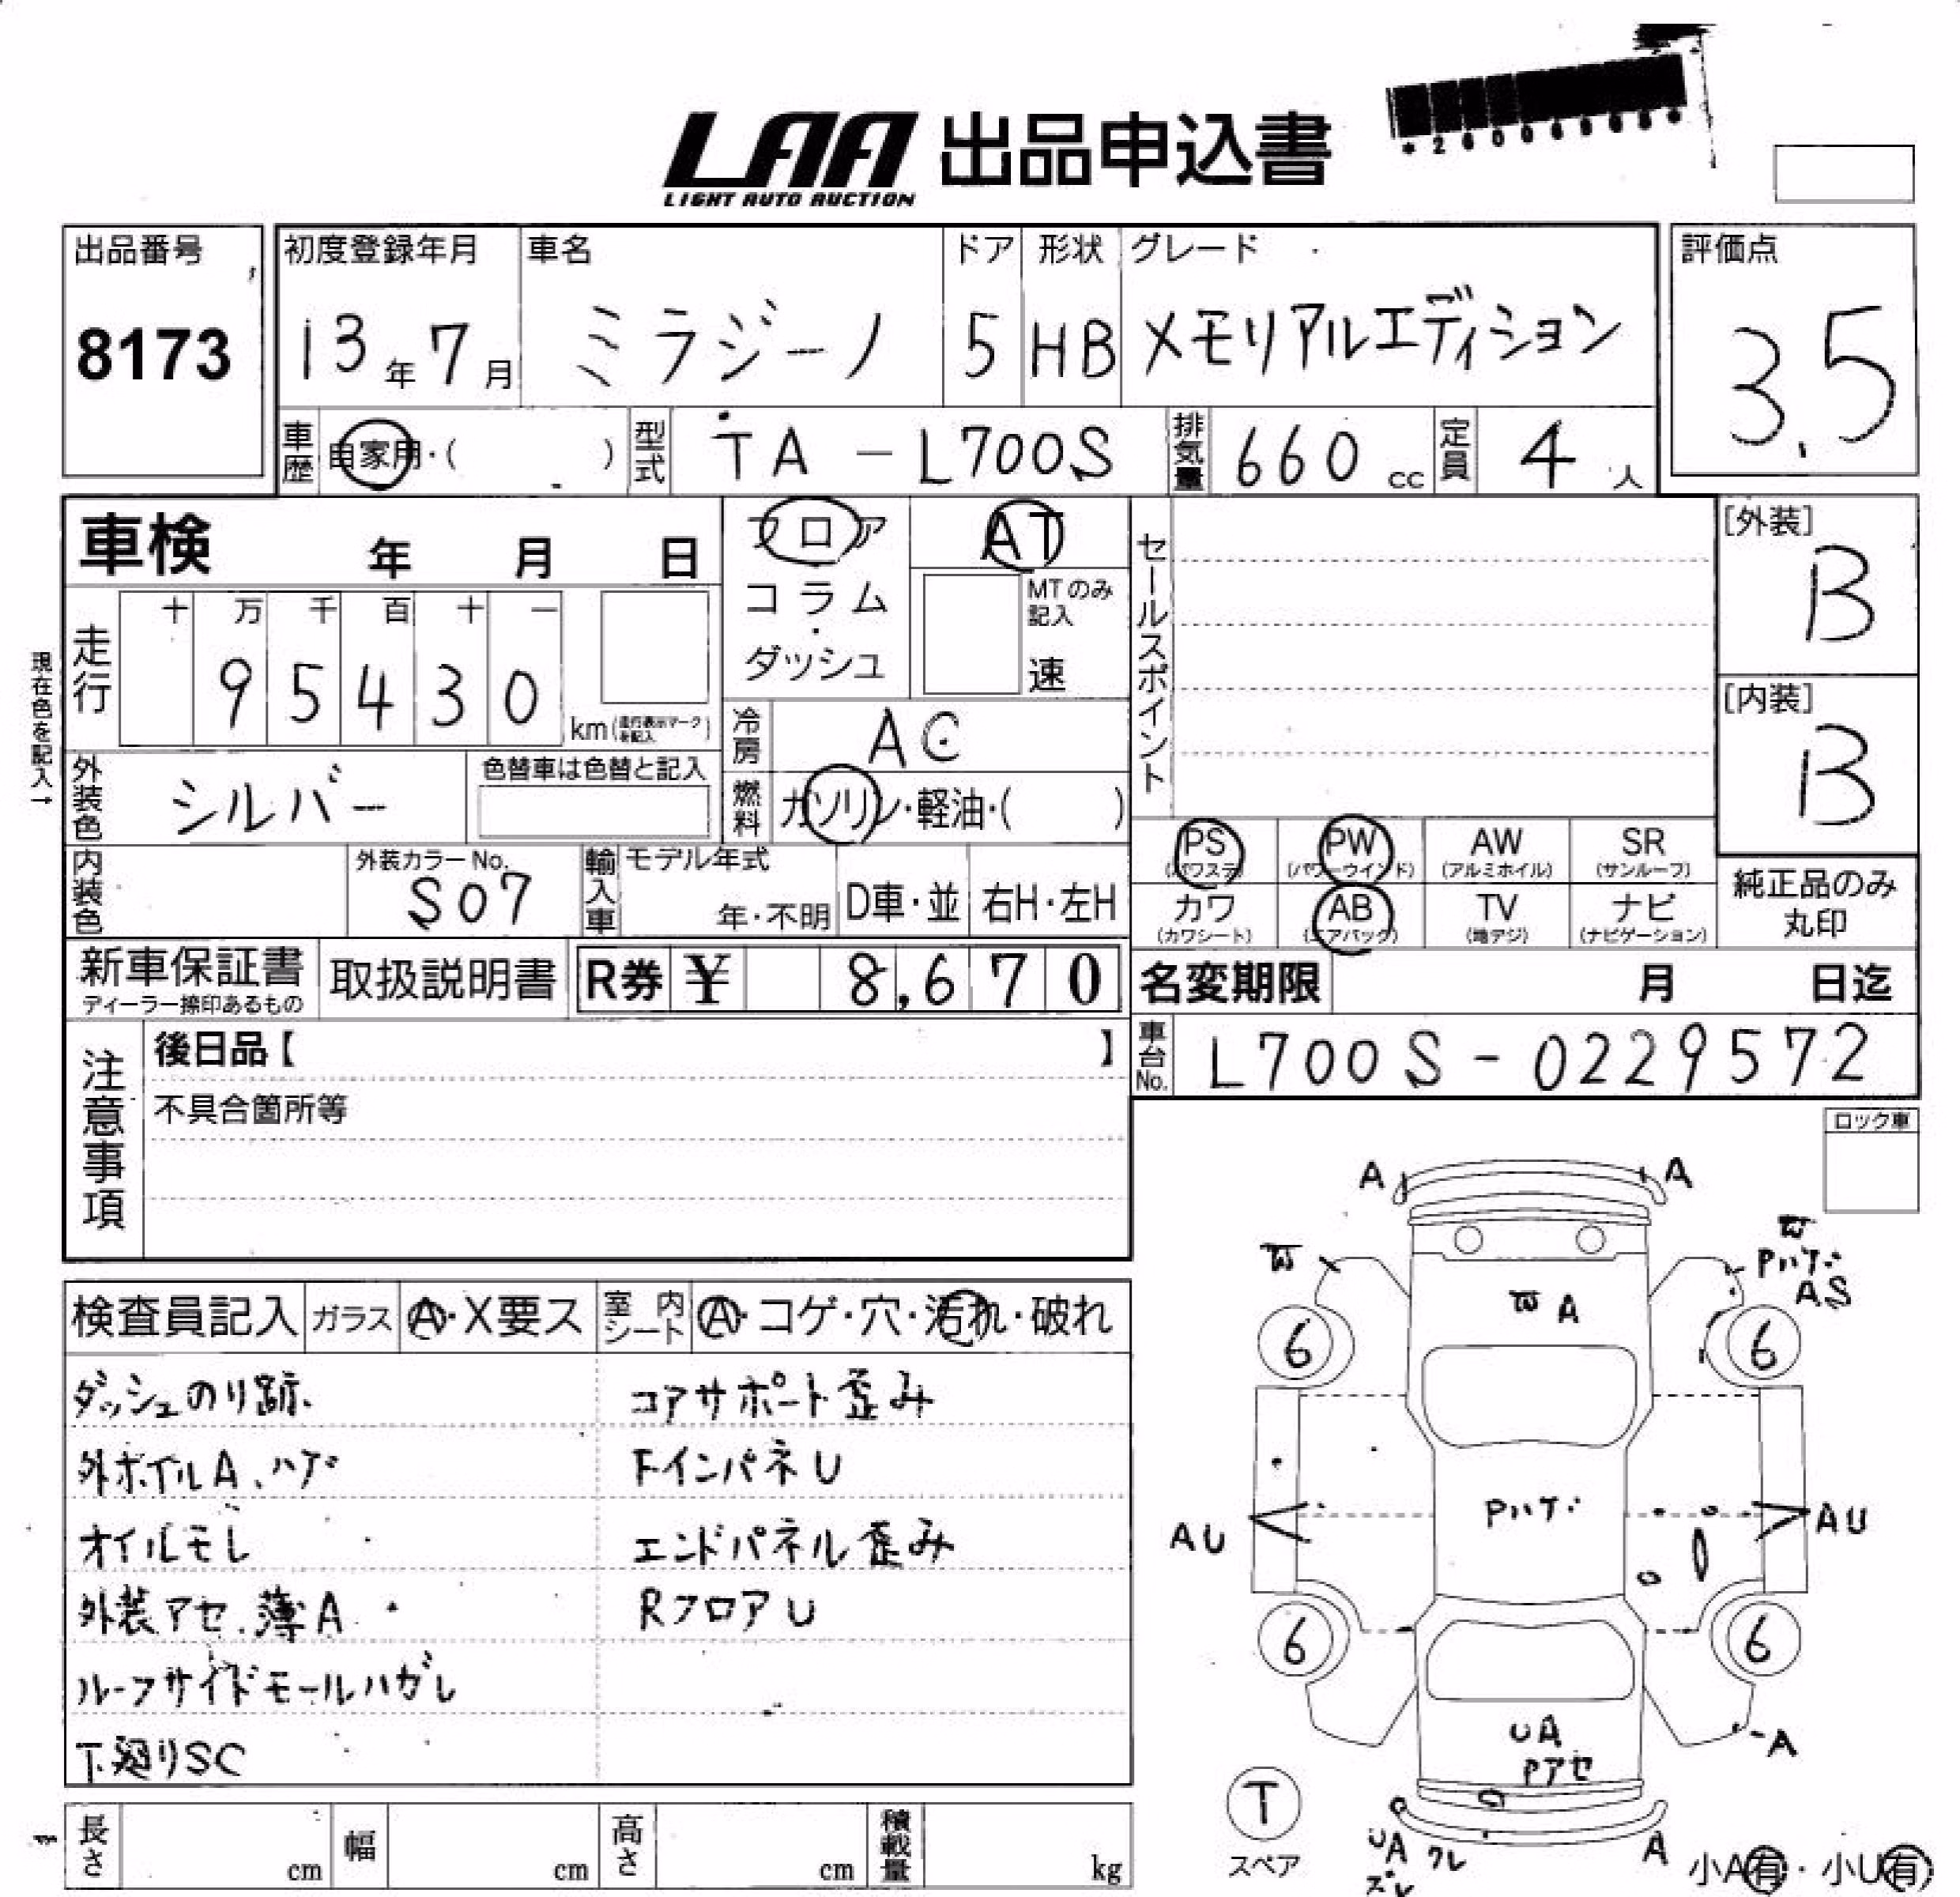 LAA 出品申込書
LIGHT AUTO AUCTION
出品番号 初度登録年月 車名 ドア 形状 グレード 評価点
8173 13年 7月 ミラジーノ 5 HB メモリアルエディション 3.5
車歴 自家用・( ) 型式 TA-L700S 排気量 660 cc 定員 4 人
車検 年 月 日 フロア AT セールスポイント [外装]
コラム・ MTのみ記入 B
ダッシュ 速
走行 十 万 千 百 十 一
現在色を記入→
9 5 4 3 0 km (走行表示マークを記入) 冷房 AC [内装]
B
外装色 シルバー 色替車は色替と記入 燃料 ガソリン・軽油・( )
PS PW AW SR
(パワステ) (パワーウインド) (アルミホイル) (サンルーフ)
内装色 外装カラーNo. S07 輸入車 モデル年式 年・不明 D車・並 右H・左H
カワ AB TV ナビ 純正品のみ
(カワシート) (エアバック) (地デジ) (ナビゲーション) 丸印
新車保証書 取扱説明書 R券 ¥ 8,670 名変期限 月 日迄
ディーラー捺印あるもの
注意事項 後日品【 】 車台No. L700S-0229572
不具合箇所等
ロック車
検査員記入 ガラス A・X要ス 室内シート A・コゲ・穴・汚れ・破れ
ダッシュのり跡 コアサポート歪み
外ホイルA、ハゲ FインパネU
オイルモレ エンドパネル歪み
外装アセ、薄A RフロアU
ルーフサイドモールハガレ
下廻りSC
A A
Pハゲ
A.S
A
6 6
Pハゲ
AU AU
6 6
UA
Pアセ
A
T
スペア
UA ワレ A
ズレ
小A有・小U有
長さ cm 幅 cm 高さ cm 積載量 kg